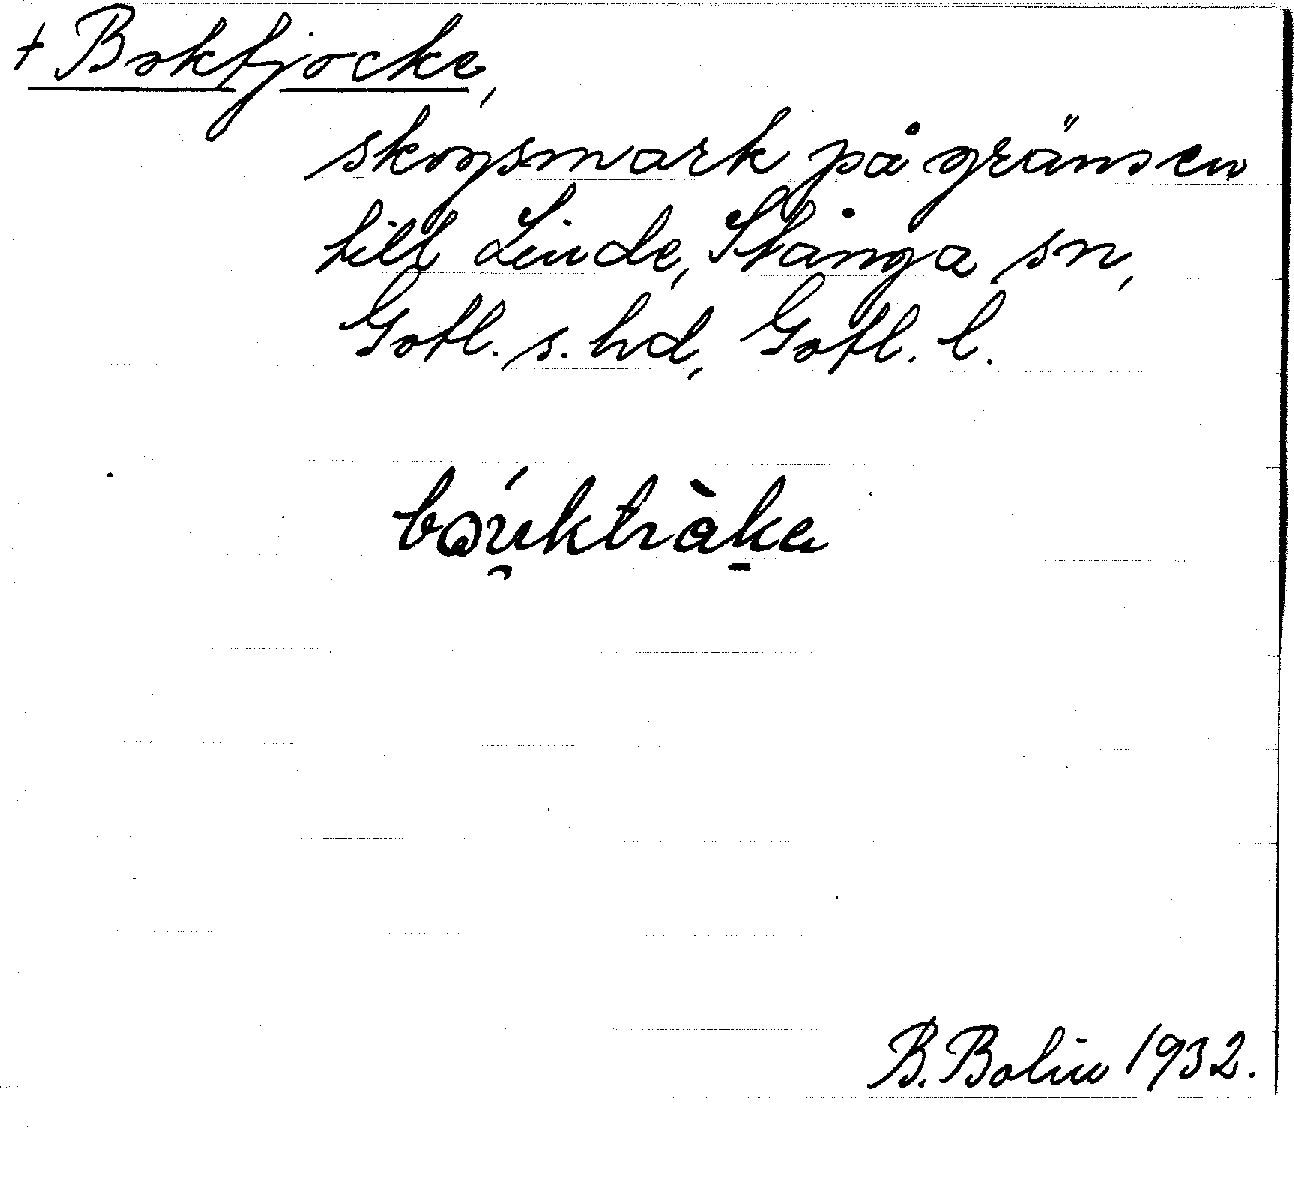 + Boktjocke,
skogsmark på gränsen
till Linde, Stånga sn,
Gotl. s. hd, Gotl. l.
B. Bolin 1932.